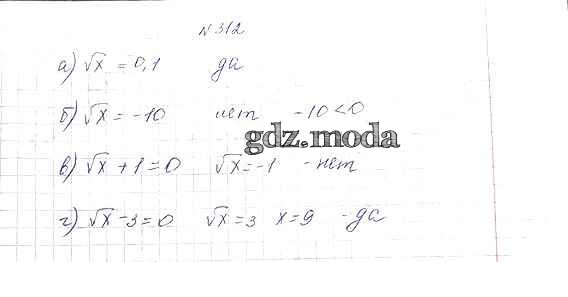 № 312
а) √x = 0,1 да
б) √x = -10 нет -10 < 0
gdz.moda
в) √x + 1 = 0 √x = -1 - нет
г) √x - 3 = 0 √x = 3 x = 9 - да